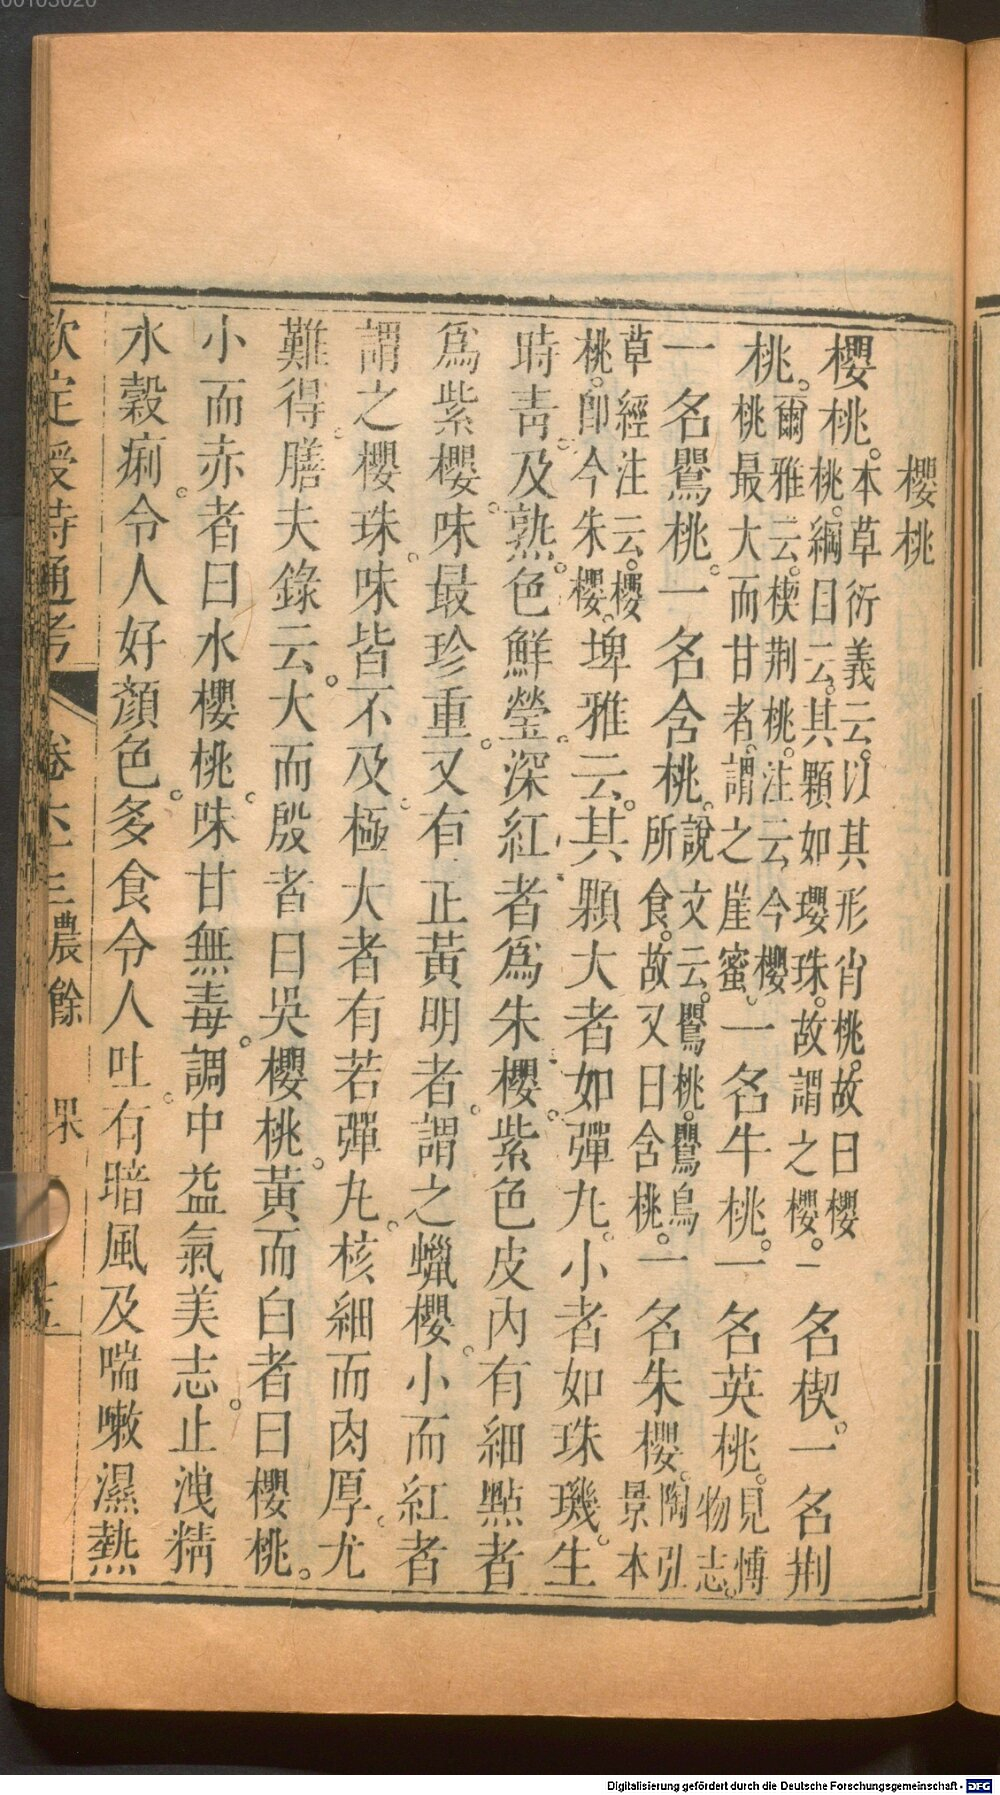 櫻桃
櫻桃。本草衍義云。以其形肖桃。故曰櫻桃。綱目云。其顆如瓔珠。故謂之櫻。一名楔。一名荆
桃。爾雅云。楔荆桃。注云今櫻桃最大而甘者。謂之崖蜜。一名牛桃。一名英桃。見愽物志。
一名鸎桃。一名含桃。說文云。鸎桃。鸎鳥所食。故又曰含桃。一名朱櫻。陶弘景本
草經注云。櫻桃。卽今朱櫻。埤雅云。其顆大者如彈丸。小者如珠璣。生
時靑。及熟。色鮮瑩。深紅者爲朱櫻。紫色皮內有細點者
爲紫櫻。味最珍重。又有正黃明者。謂之蠟櫻。小而紅者
謂之櫻珠。味皆不及。極大者有若彈丸。核細而肉厚。尤
難得。膳夫錄云。大而殷者曰吳櫻桃。黃而白者曰櫻桃。
小而赤者曰水櫻桃。味甘無毒。調中益氣美志。止洩精
水穀痢。令人好顏色。多食令人吐。有暗風及喘嗽濕熱
欽定授時通考 卷六十三 農餘 果
Digitalisierung gefördert durch die Deutsche Forschungsgemeinschaft - DFG